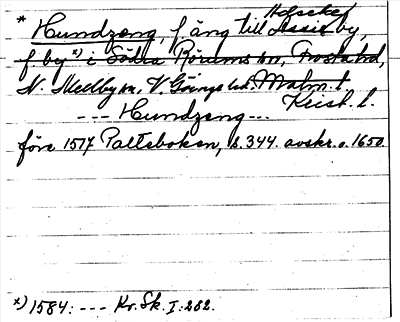 Hofseke
* Hundzeng, f. äng till Assie by,
f by x) i Södra Rörums sn, Frosta hd,
N. Mellby sn. V. Göinge hd. Malm. l.
Krist. l.
--- Hundzeng ---
före 1517 Palteboken, s. 344. avskr. o. 1650.
x) 1584: --- Kr. Sk. I: 282.